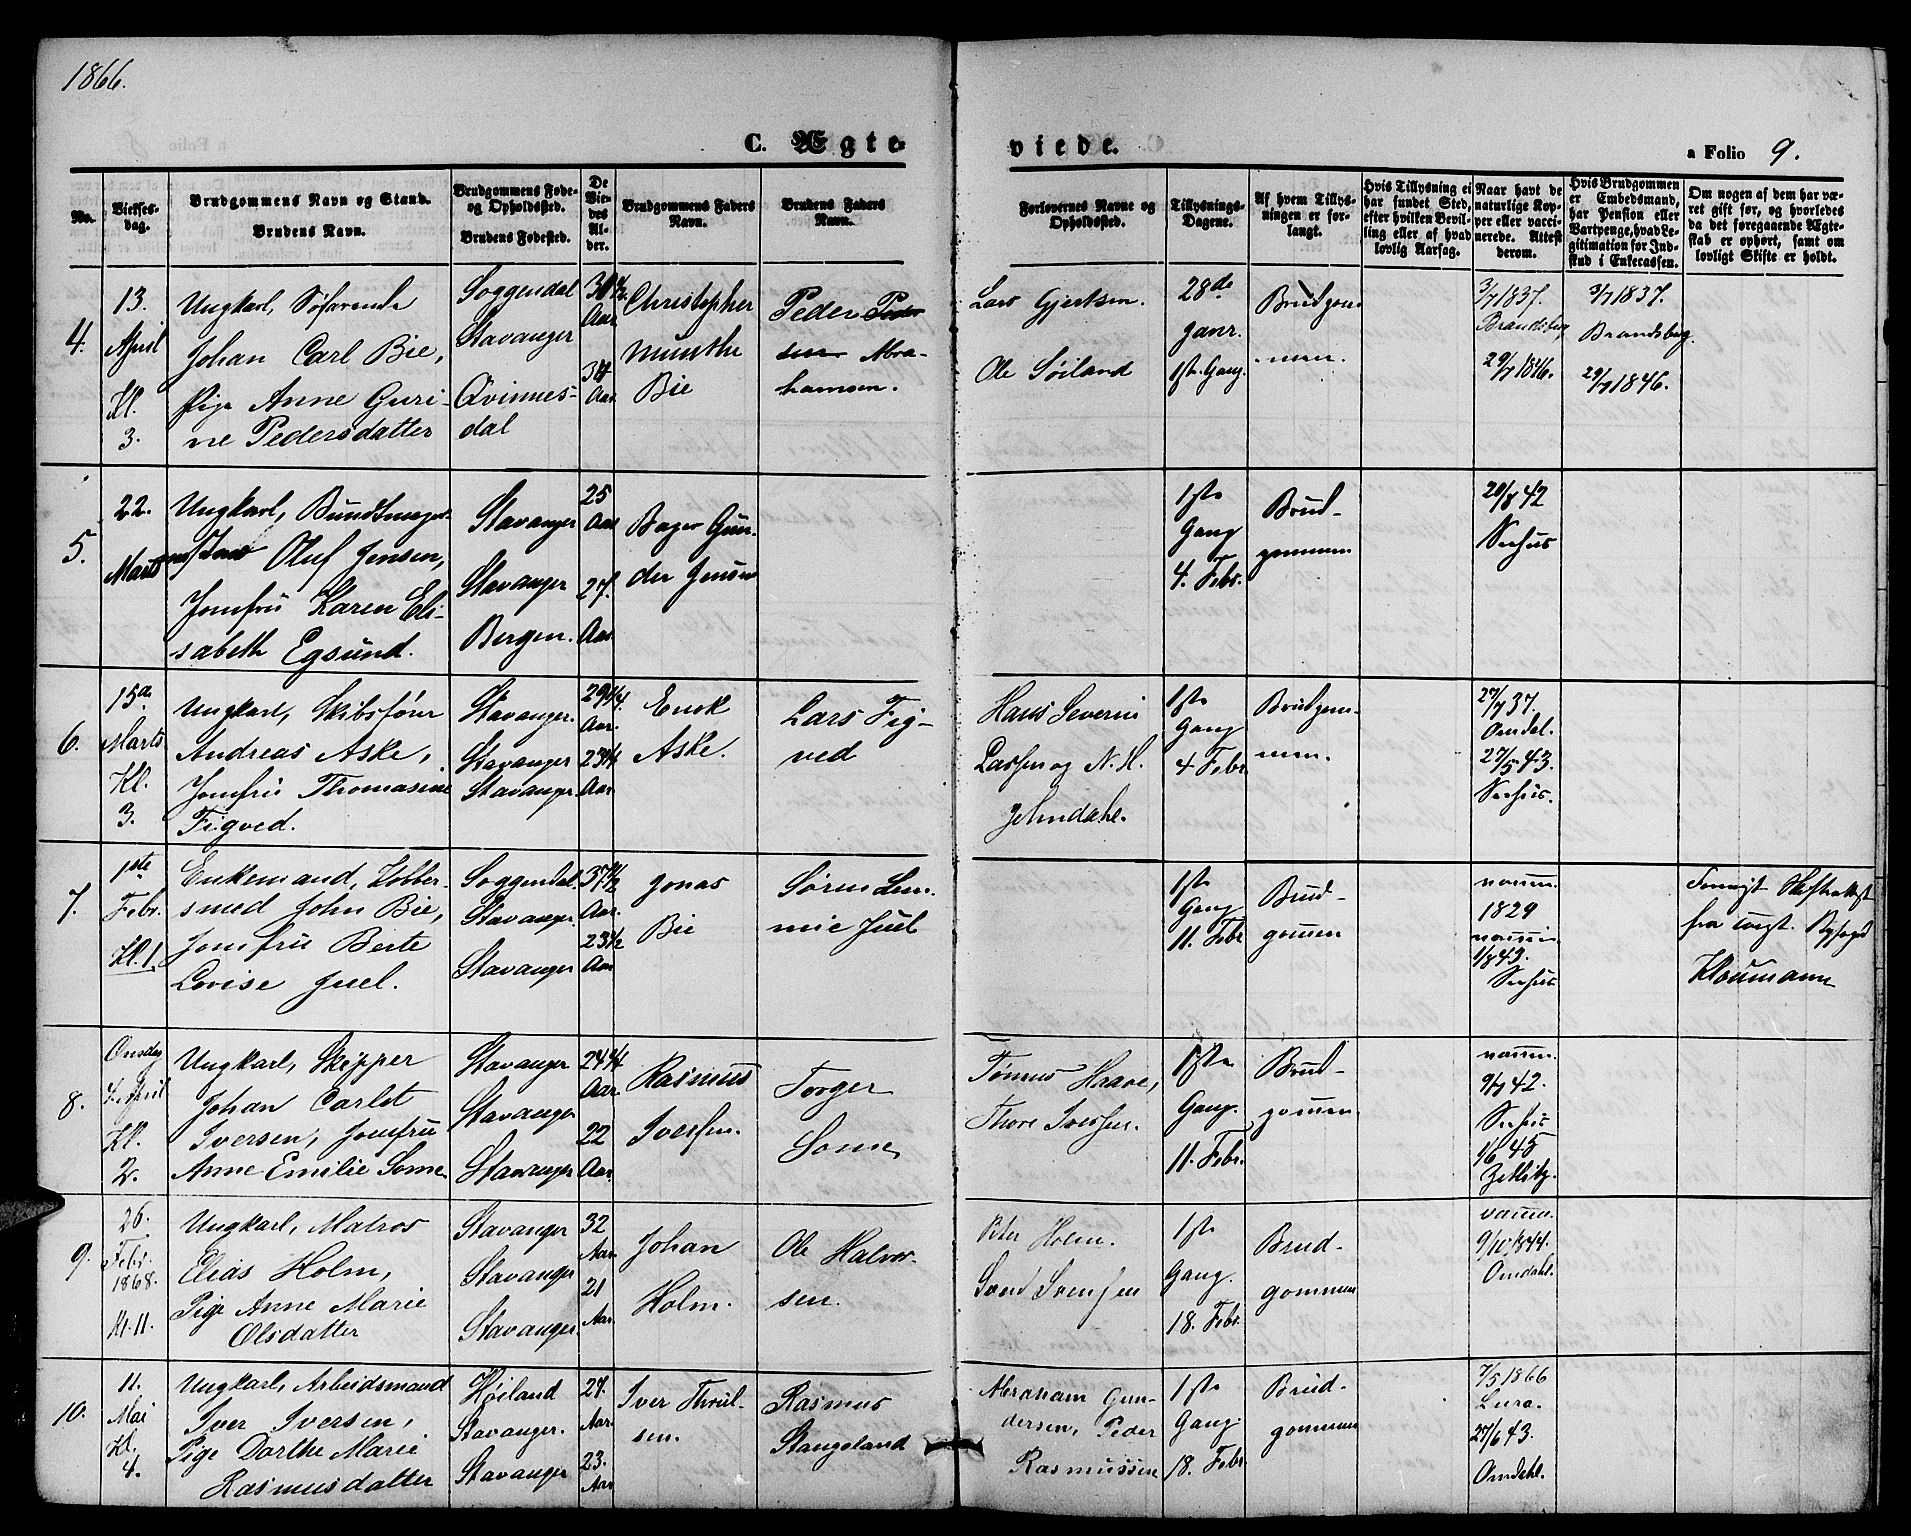 1866.
C. Ægte-
viede.
a Folio 9.
No.
Vielses-
dag.
Brudgommens Navn og Stand.
Brudens Navn.
Brudgommens Føde-
og Opholdssted.
Brudens Fødested.
De
Vie-
des
Al-
der.
Brudgommens Faders
Navn.
Brudens Faders
Navn.
Forlovernes Navne og
Opholdssted.
Tillysnings-
Dagene.
Af hvem Tillys-
ningen er for-
langt.
Hvis Tillysning ei
har fundet Sted,
efter hvilken Bevil-
ling eller af hvad
lovlig Aarsag.
Naar havt de
naturlige Kop-
per eller vacci-
nerede. Attest
derom.
Hvis Brudgommen
er Embedsmand,
har Pension eller
Vartpenge, hvad Le-
gitimation for Ind-
skud i Enkecassen.
Om nogen af dem har væ-
ret gift før, og hvorledes
da det foregaaende Ægte-
skab er ophørt, samt om
lovligt Skifte er holdt.
4.
13.
April
Kl.
3.
Ungkarl, Søfarende
Johan Carl Bie,
Pige Anne Guri-
ne Pedersdatter
Soggendal
Stavanger
Qvinnes-
dal
Aar
Aar
Christopher
Munthe
Bie
Peder Peder
sen Abra-
hamsen.
Lars Gjertsen.
Ole Søiland
28de
Janr.
1ste Gang.
Brudgom-
men.
3/7 1837.
Brandsberg
29/7 1846.
3/7 1837.
Brandsberg.
29/7 1846.
5.
22.
Marts
Ungkarl, Bundtmager
Oluf Jensen,
Jomfru Karen Eli-
sabeth Egsund.
Stavanger
Stavanger
Bergen.
25
Aar
27.
Aar
Bager Gun-
der Jensen
1ste
Gang
4. Febr.
Brud-
gommen
20/8 42
Seehus
6.
15de
Marts
Kl.
3.
Ungkarl, Skibsfører
Andreas Aske,
Jomfru Thomasine
Figved.
Stavanger.
Stavanger
Stavanger.
Aar.
Aar
Enok
Aske.
Lars Fig-
ved
Hans Severin
Lassen og N. H.
1ste
Gang
4 Febr.
Brudgom-
men.
27/7 37.
Omdal.
27/5 43.
Seehus.
7.
1ste
Febr.
Kl. 1.
Enkemand, Kobber-
smed John Bie,
Jomfru Berte
Lovise Juel.
Soggendal.
Stavanger.
Stavanger
37 1/2
Aar.
23 1/2
Aar
Jonas
Bie
Søren Lem-
mic Juel
1ste
Gang
11. Febr
Brud-
gommen
1829
1/8 43.
Seehus
fra
Kloumann
8.
Onsdag
4. April
Kl.
2.
Ungkarl, Skipper
Johan Carlet
Iversen, Jomfru
Anne Emilie Some
Stavanger
Stavanger
Stavanger
Aar.
22
Aar.
Rasmus
Iversen.
Torger
Some
Tønnes Haave,
Thore Iversen.
1ste
Gang.
11. Febr.
Brud-
gommen.
9/7 42.
Seehus
1/6 45
Zetlitz.
9.
26.
Febr.
1868.
Kl. 11.
Ungkarl, Matros
Elias Holm,
Pige Anne Marie
Olsdatter
Stavanger
Stavanger
Stavanger.
32
Aar
21
Aar.
Johan
Holm.
Ole Halvor-
sen.
Peter Holm.
Svend Svensen
1ste
Gang.
18. Febr.
Brud-
gommen
9/10 1844.
Omdahl.
10.
11.
Mai
Kl.
4.
Ungkarl, Arbeidsmand
Iver Iversen,
Pige Dorthe Marie
Rasmusdatter
Høiland
Stavanger.
Stavanger
27.
Aar.
23.
Aar
Iver Thrul-
sen.
Rasmus
Stangeland
Abraham Gun-
dersen, Peder
Rasmussen
1ste
Gang.
18. Febr
Brud-
gommen
7/5 1866
Lura.
27/6 43.
Omdahl.